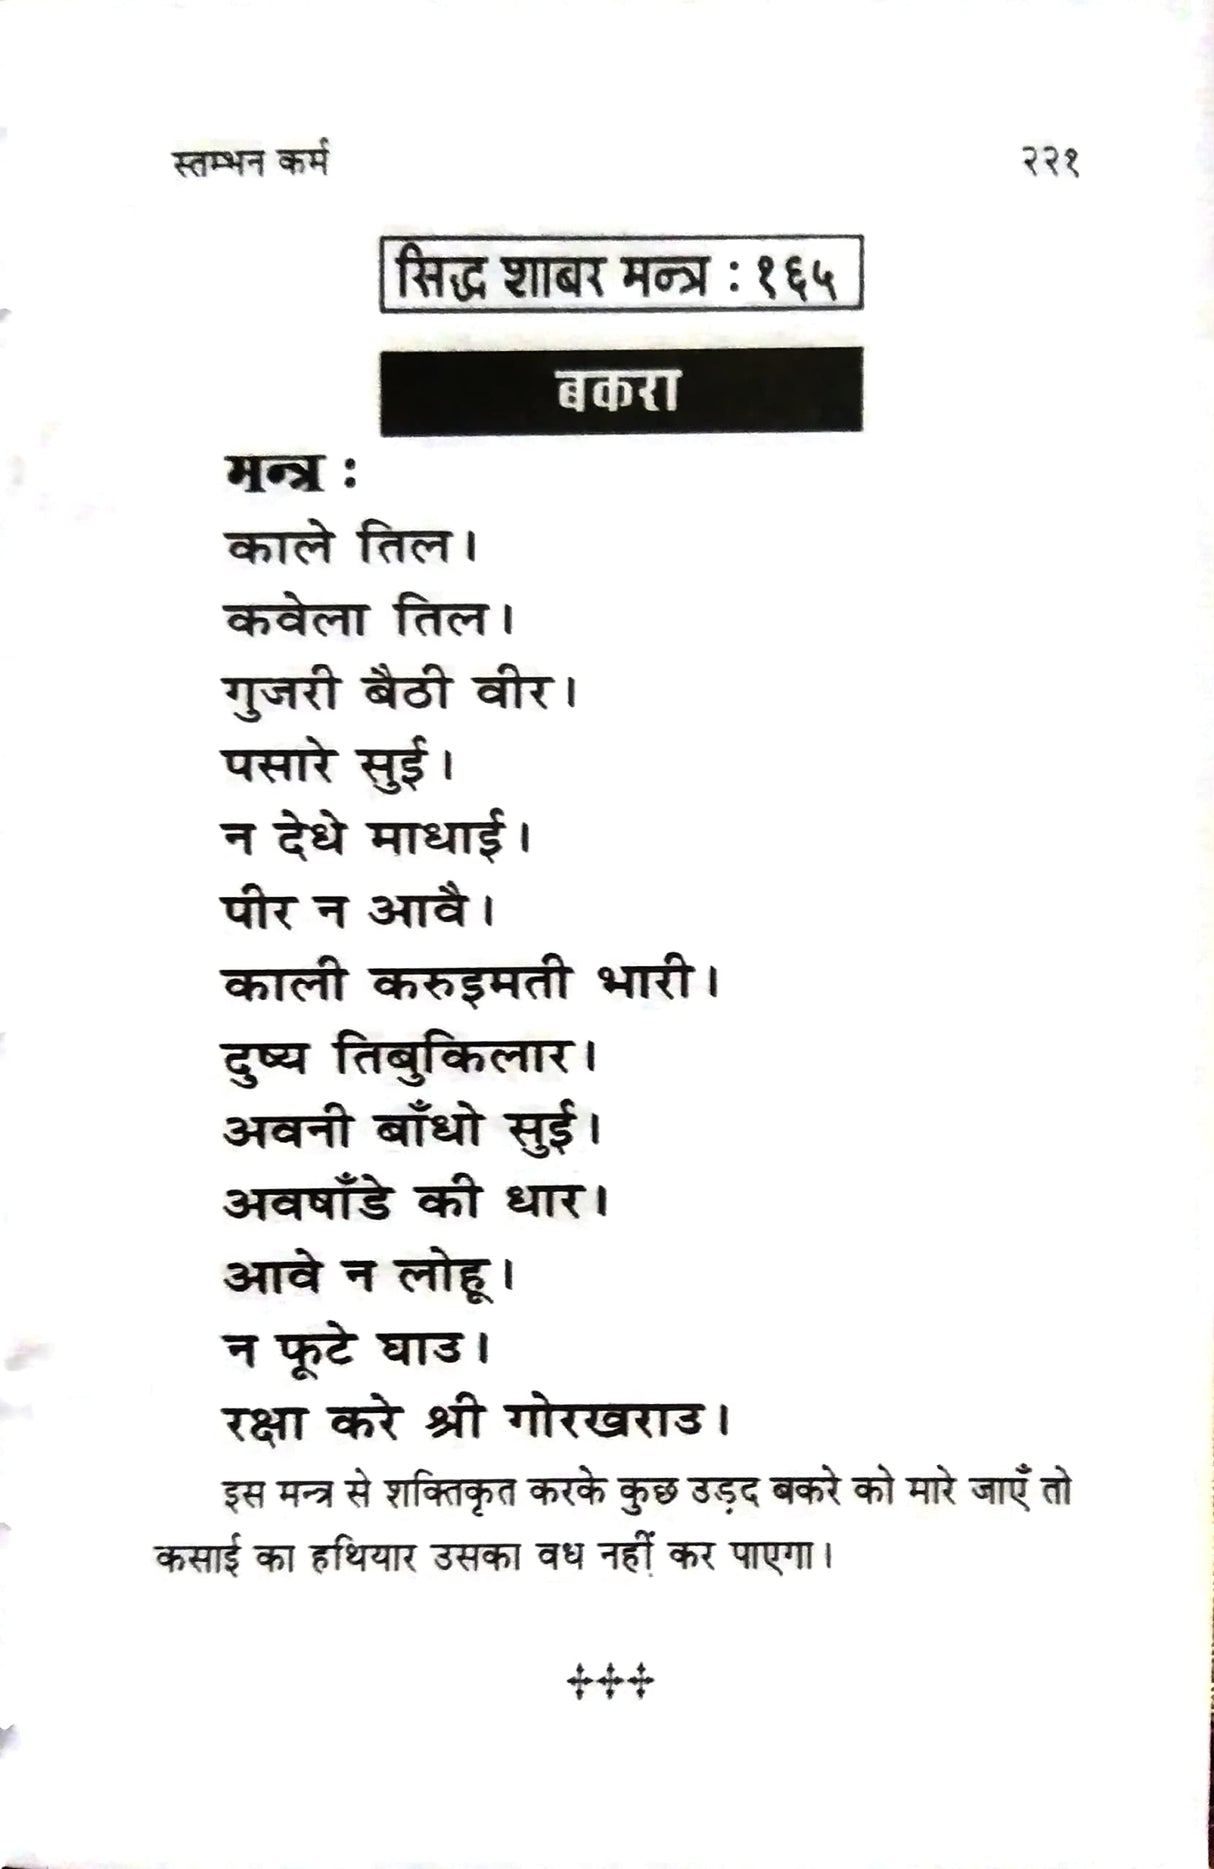 स्तम्भन कर्म २२१
सिद्ध शाबर मन्त्र : १६५
बकरा
मन्त्र :
काले तिल।
कवेला तिल।
गुजरी बैठी वीर।
पसारे सुई।
न देधे माधाई।
पीर न आवै।
काली करुइमती भारी।
दुष्य तिबुकिलार।
अवनी बाँधो सुई।
अवषाँडे की धार।
आवे न लोहू।
न फूटे घाउ।
रक्षा करे श्री गोरखराउ।
इस मन्त्र से शक्तिकृत करके कुछ उड़द बकरे को मारे जाएँ तो
कसाई का हथियार उसका वध नहीं कर पाएगा।